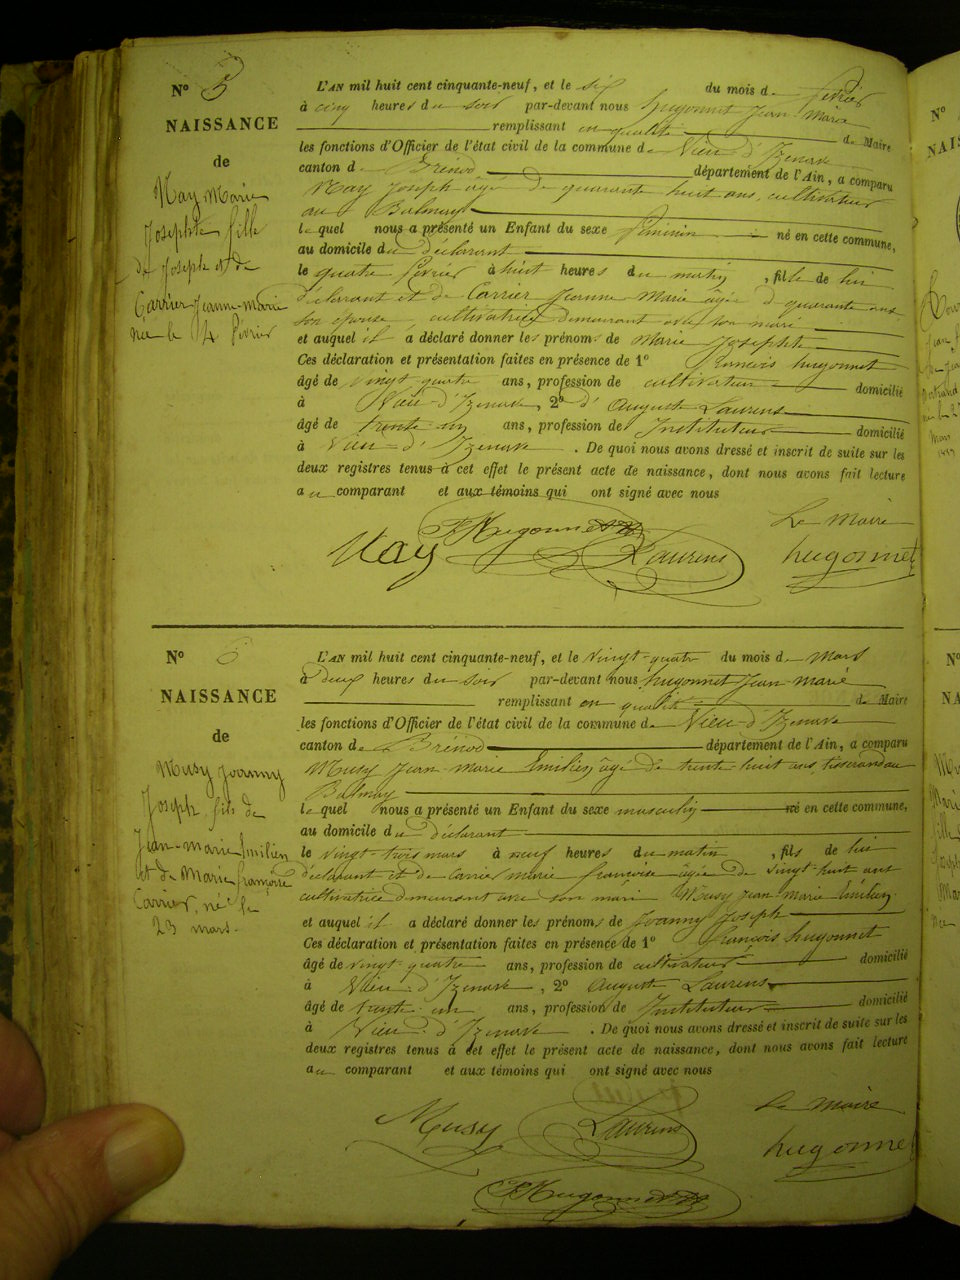 N° 5
NAISSANCE
de
May Marie
Josephte fille
de Joseph et de
Carrier Jeanne-marie
née le 4 février
L'AN mil huit cent cinquante-neuf, et le six du mois de février
à cinq heures du soir par-devant nous hugonnet Jean-Marie
remplissant en qualité de Maire
les fonctions d'Officier de l'état civil de la commune de Vieu d'Izenave
canton de Brénod département de l'Ain, a comparu
May Joseph agé de quarante huit ans, cultivateur
au Balmay
le quel nous a présenté un Enfant du sexe féminin né en cette commune,
au domicile du déclarant
le quatre février à huit heures du matin, fille de lui
déclarant et de Carrier Jeanne Marie âgée d quarante ans
son épouse, cultivatrice demeurant avec son mari
et auquel il a déclaré donner les prénoms de Marie Josephte
Ces déclaration et présentation faites en présence de 1° francois hugonnet
âgé de vingt-quatre ans, profession de cultivateur domicilié
à Vieu-d'Izenave, 2° d' Auguste Laurens
âgé de trente-un ans, profession de Instituteur domicilié
à Vieu-d'Izenave. De quoi nous avons dressé et inscrit de suite sur les
deux registres tenus à cet effet le présent acte de naissance, dont nous avons fait lecture
au comparant et aux témoins qui ont signé avec nous
Le Maire
May F Hugonnet Laurens hugonnet
N° 6
NAISSANCE
de
Musy Joanny
Joseph fils de
Jean-marie Emilien
et de Marie françoise
Carrier, né le
23 mars.
L'AN mil huit cent cinquante-neuf, et le vingt-quatre du mois de Mars
à deux heures du soir par-devant nous hugonnet Jean-marie
remplissant en qualité de Maire
les fonctions d'Officier de l'état civil de la commune de Vieu-d'Izenave
canton de Brénod département de l'Ain, a comparu
Musy Jean-marie Emilien âgé de trente huit ans tisserand au
Balmay
le quel nous a présenté un Enfant du sexe masculin né en cette commune,
au domicile du déclarant
le vingt-trois mars à neuf heures du matin, fils de lui
déclarant et de Carrier marie françoise agée de vingt-huit ans
cultivatrice demeurant avec son mari Musy Jean Marie Emilien
et auquel il a déclaré donner les prénoms de Joanny Joseph
Ces déclaration et présentation faites en présence de 1° françois hugonnet
âgé de vingt-quatre ans, profession de cultivateur domicilié
à Vieu-d'Izenave, 2° Auguste Laurens
âgé de trente-un ans, profession de Instituteur domicilié
à Vieu-d'Izenave. De quoi nous avons dressé et inscrit de suite sur les
deux registres tenus à cet effet le présent acte de naissance, dont nous avons fait lecture
au comparant et aux témoins qui ont signé avec nous
Le Maire
Musy Laurens hugonnet
F Hugonnet